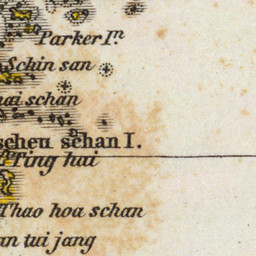 Parker Iⁿ.
Schin san
schan
schan I.
Ting hai
Thao hoa schan
tui jang